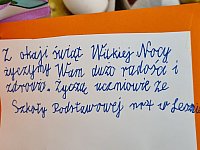 Z okazji świąt Wielkiej Nocy
życzymy Wam dużo radości i
zdrowia. Życzą uczniowie ze
Szkoły Podstawowej nr 7 w